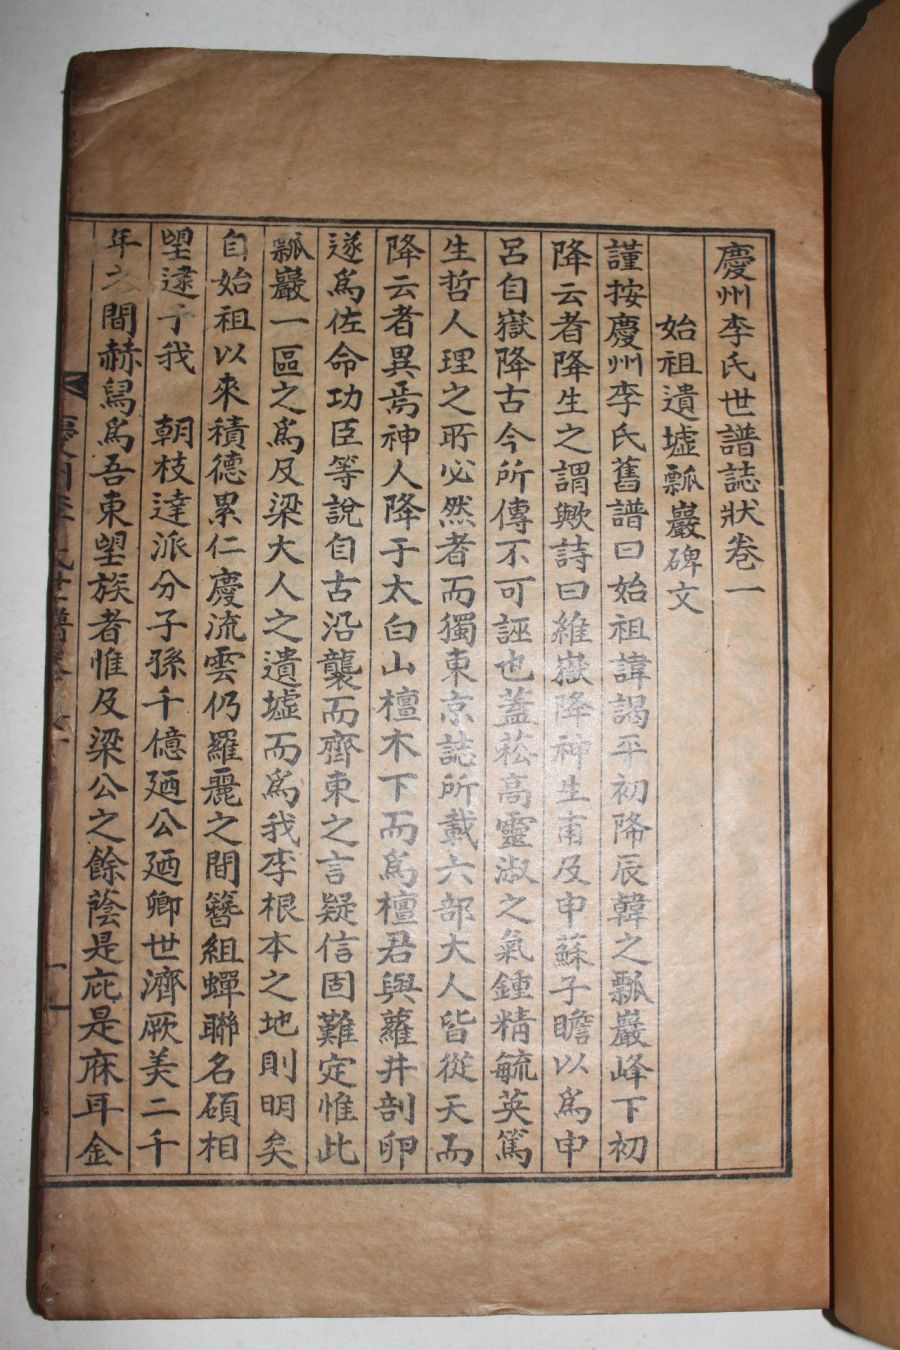 慶州李氏世譜誌狀卷一
始祖遺墟瓢巖碑文
謹按慶州李氏舊譜曰始祖諱謁平初降辰韓之瓢巖峰下初
降云者降生之謂歟詩曰維嶽降神生甫及申蘇子瞻以爲申
呂自嶽降古今所傳不可誣也蓋崧高靈淑之氣鍾精毓英篤
生哲人理之所必然者而獨東京誌所載六部大人皆從天而
降云者異焉神人降于太白山檀木下而爲檀君與蘿井剖卵
遂爲佐命功臣等說自古沿襲而齊東之言疑信固難定惟此
瓢巖一區之爲及梁大人之遺墟而爲我李根本之地則明矣
自始祖以來積德累仁慶流雲仍羅麗之間簪組蟬聯名碩相
望逮于我 朝枝達派分子孫千億廼公廼卿世濟厥美二千
年之間赫舄爲吾東望族者惟及梁公之餘蔭是庇是庥耳金